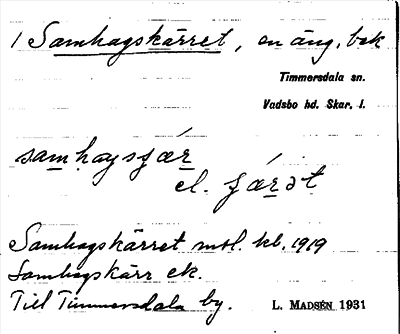 1 Samhagskärret, en äng, bek
Timmersdala sn.
Vadsbo hd. Skar. l.
sam̲ḥagsʃær̲
el. ʃær̲ət
Samhagskärret mtl. kb. 1919
Samhagskärr ek.
Till Timmersdala by.
L. MADSÉN 1931